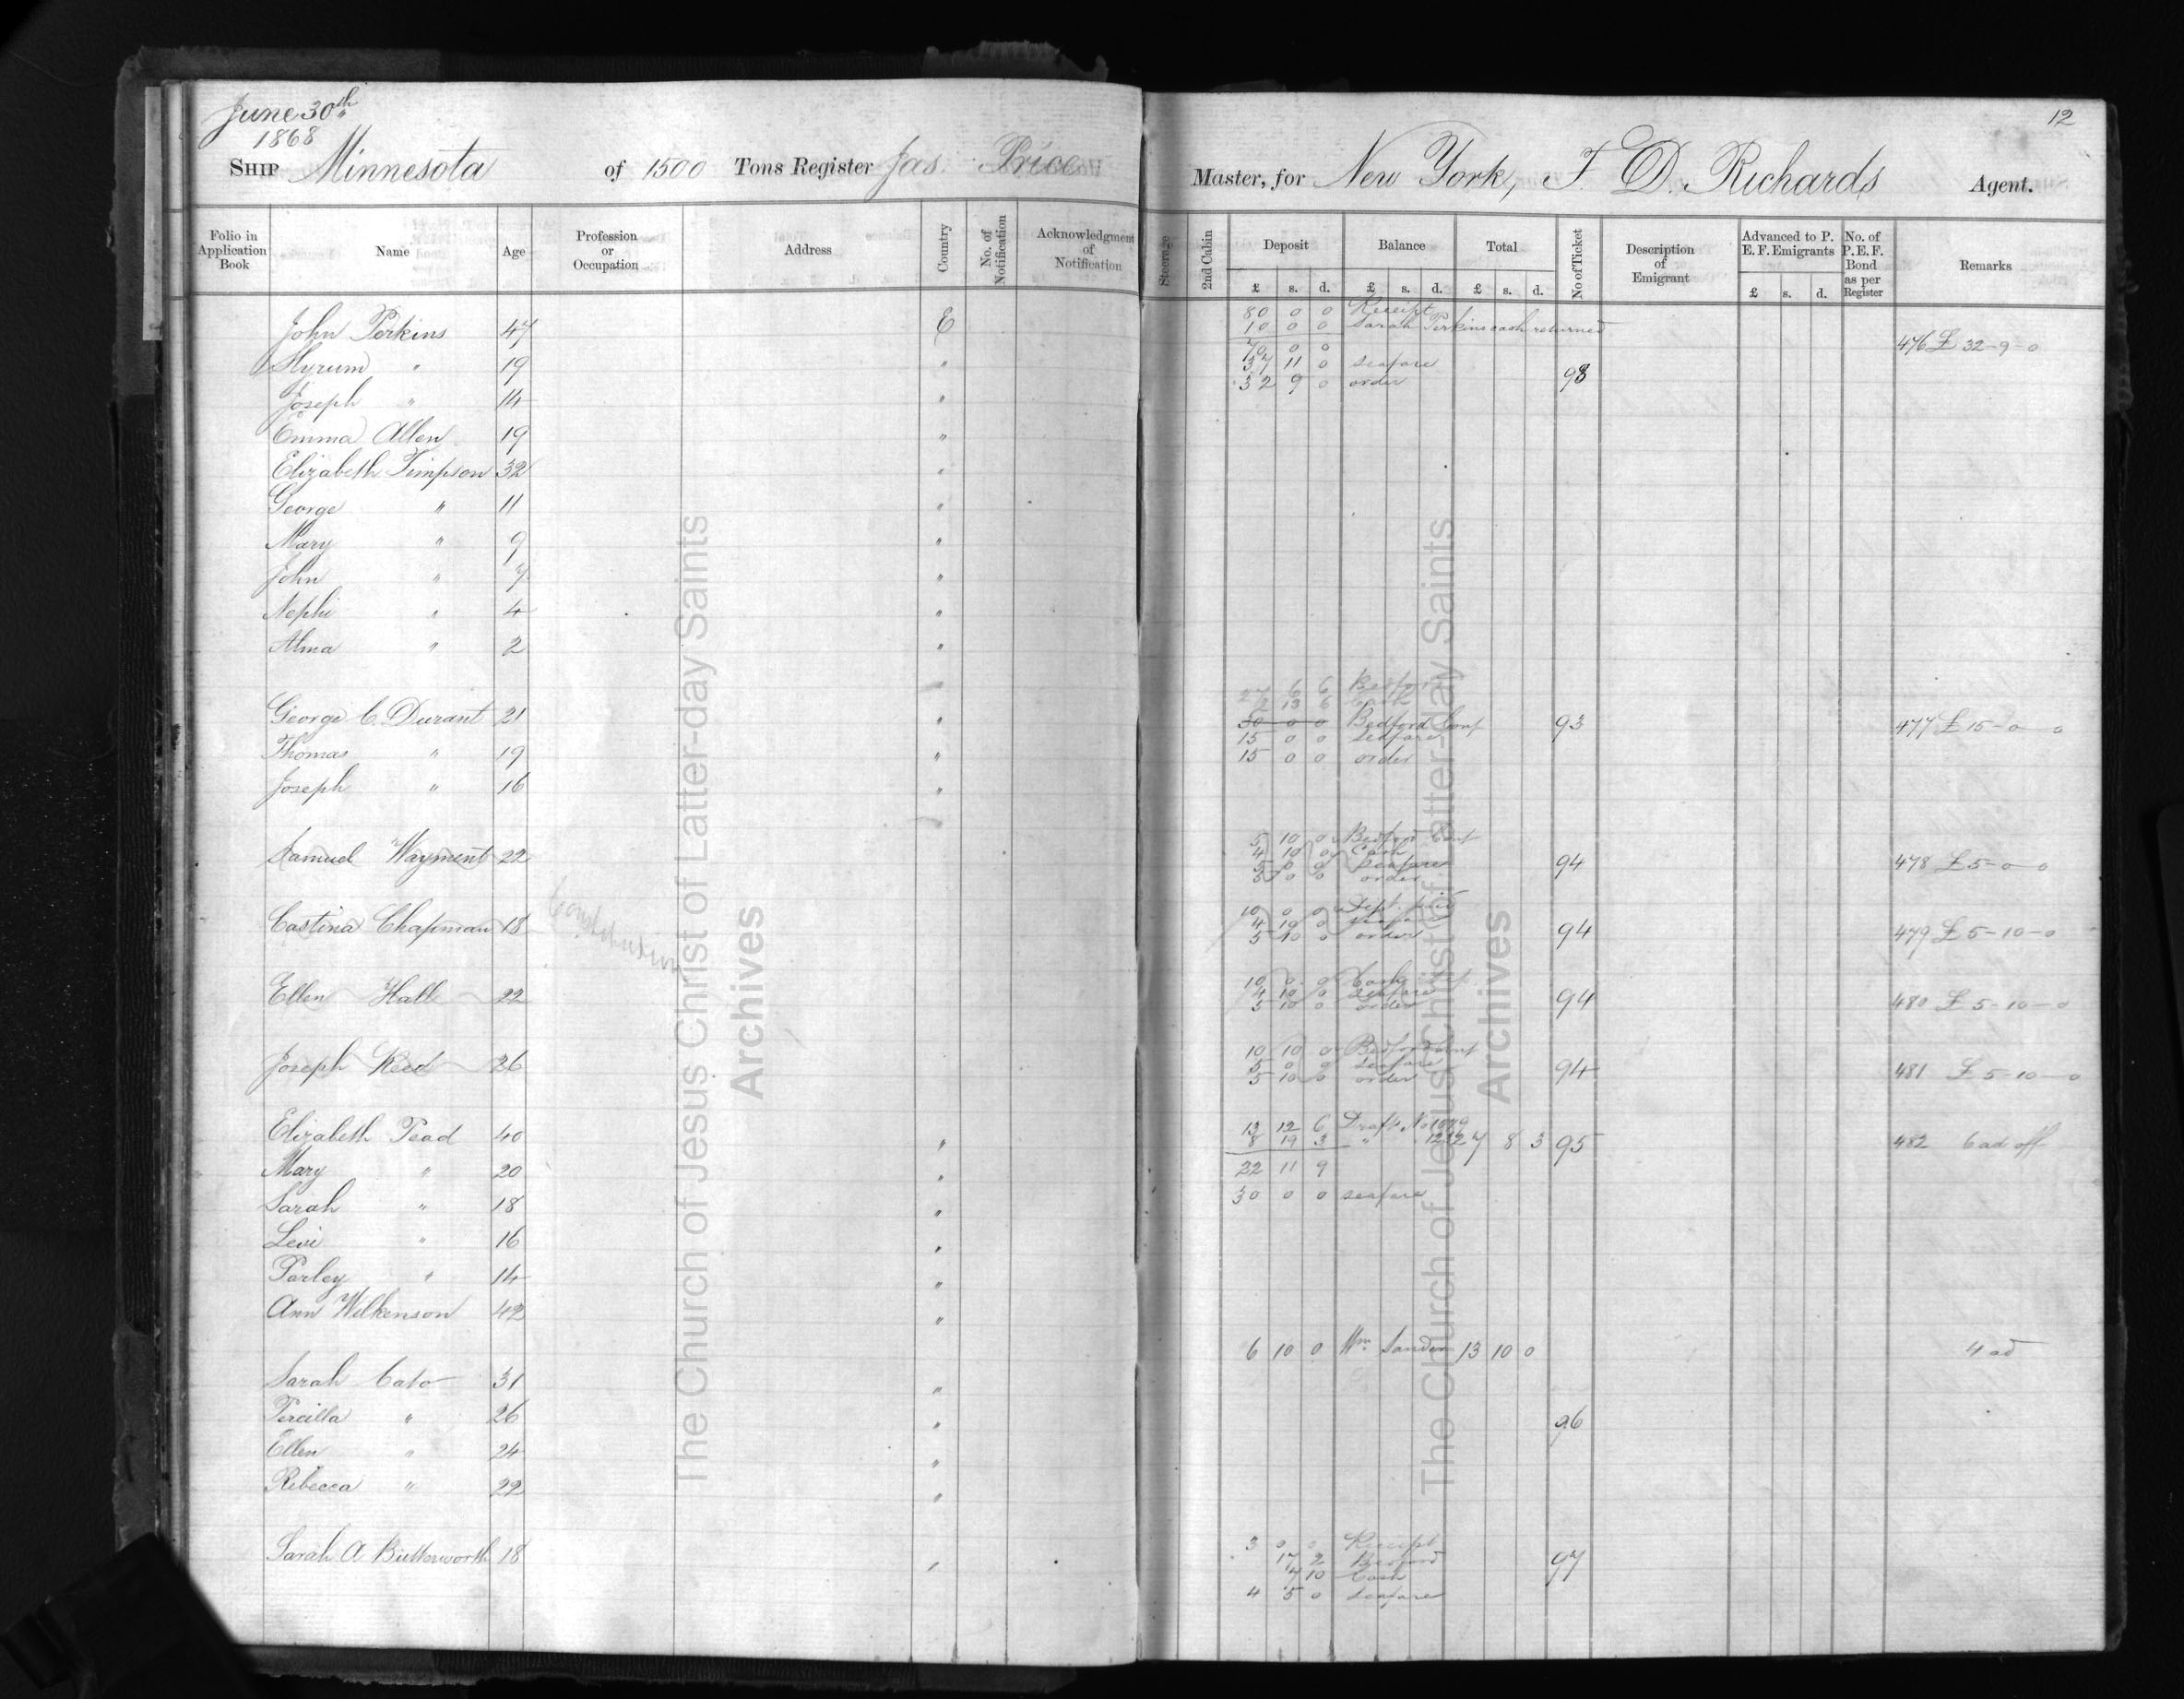 June 30th
1868
12
SHIP Minnesota of 1500 Tons Register Jas. Price Master, for New York, F. D. Richards Agent.
Folio in Application Book Name Age Profession or Occupation Address Country No. of Notification Acknowledgment of Notification Steerage 2nd Cabin Deposit Balance Total No of Ticket Description of Emigrant Advanced to P. E. F. Emigrants No. of P. E. F. Bond as per Register Remarks
£ s. d. £ s. d. £ s. d. £ s. d.
80 0 0 Receipt
John Perkins 47 E 10 0 0 Sarah Perkins cash returned
70 0 0 476 £ 32-9-0
Hyrum " 19 " 37 11 0 seafare
32 9 0 order 98
Joseph " 14 "
Emma Allen 19 "
Elizabeth Timpson 32 "
George " 11 "
Mary " 9 "
John " 7 "
Nephi " 4 "
Alma " 2 "
27 6 6 Bedford
2 13 6 Cash
George C. Durant 21 " 30 0 0 Bedford Conf 93 477 £ 15-0-0
15 0 0 seafare
Thomas " 19 " 15 0 0 order
Joseph " 16 "
5 10 0 Bedford Conf
Samuel Wayment 22 4 10 0 Cash 94 478 £ 5-0-0
5 0 0 seafare
5 0 0 order
10 0 0 Dept. paid
Castina Chapman 18 4 10 0 seafare 94 479 £ 5-10-0
5 10 0 order
10 0 0 Cash
Ellen Hall 22 4 10 0 seafare 94 480 £ 5-10-0
5 10 0 order
10 10 0 Bedford Conf
Joseph Reed 26 5 0 0 seafare 94 481 £ 5-10-0
5 10 0 order
13 12 6 Draft No
Elizabeth Tead 40 " 8 19 3 " 7 8 3 95 482 6 ad off
Mary " 20 " 22 11 9
Sarah " 18 " 30 0 0 seafare
Levi " 16 "
Parley " 14 "
Ann Wilkenson 42 "
6 10 0 Wm. Sanders 13 10 0 4 ad
Sarah Cato 31 "
Percilla " 26 " 96
Ellen " 24 "
Rebecca " 22 "
3 0 0 Receipt
Sarah A Butterworth 18 " 17 2 Bedford 97
7 10 Cash
4 5 0 seafare
The Church of Jesus Christ of Latter-day Saints
Archives
The Church of Jesus Christ of Latter-day Saints
Archives